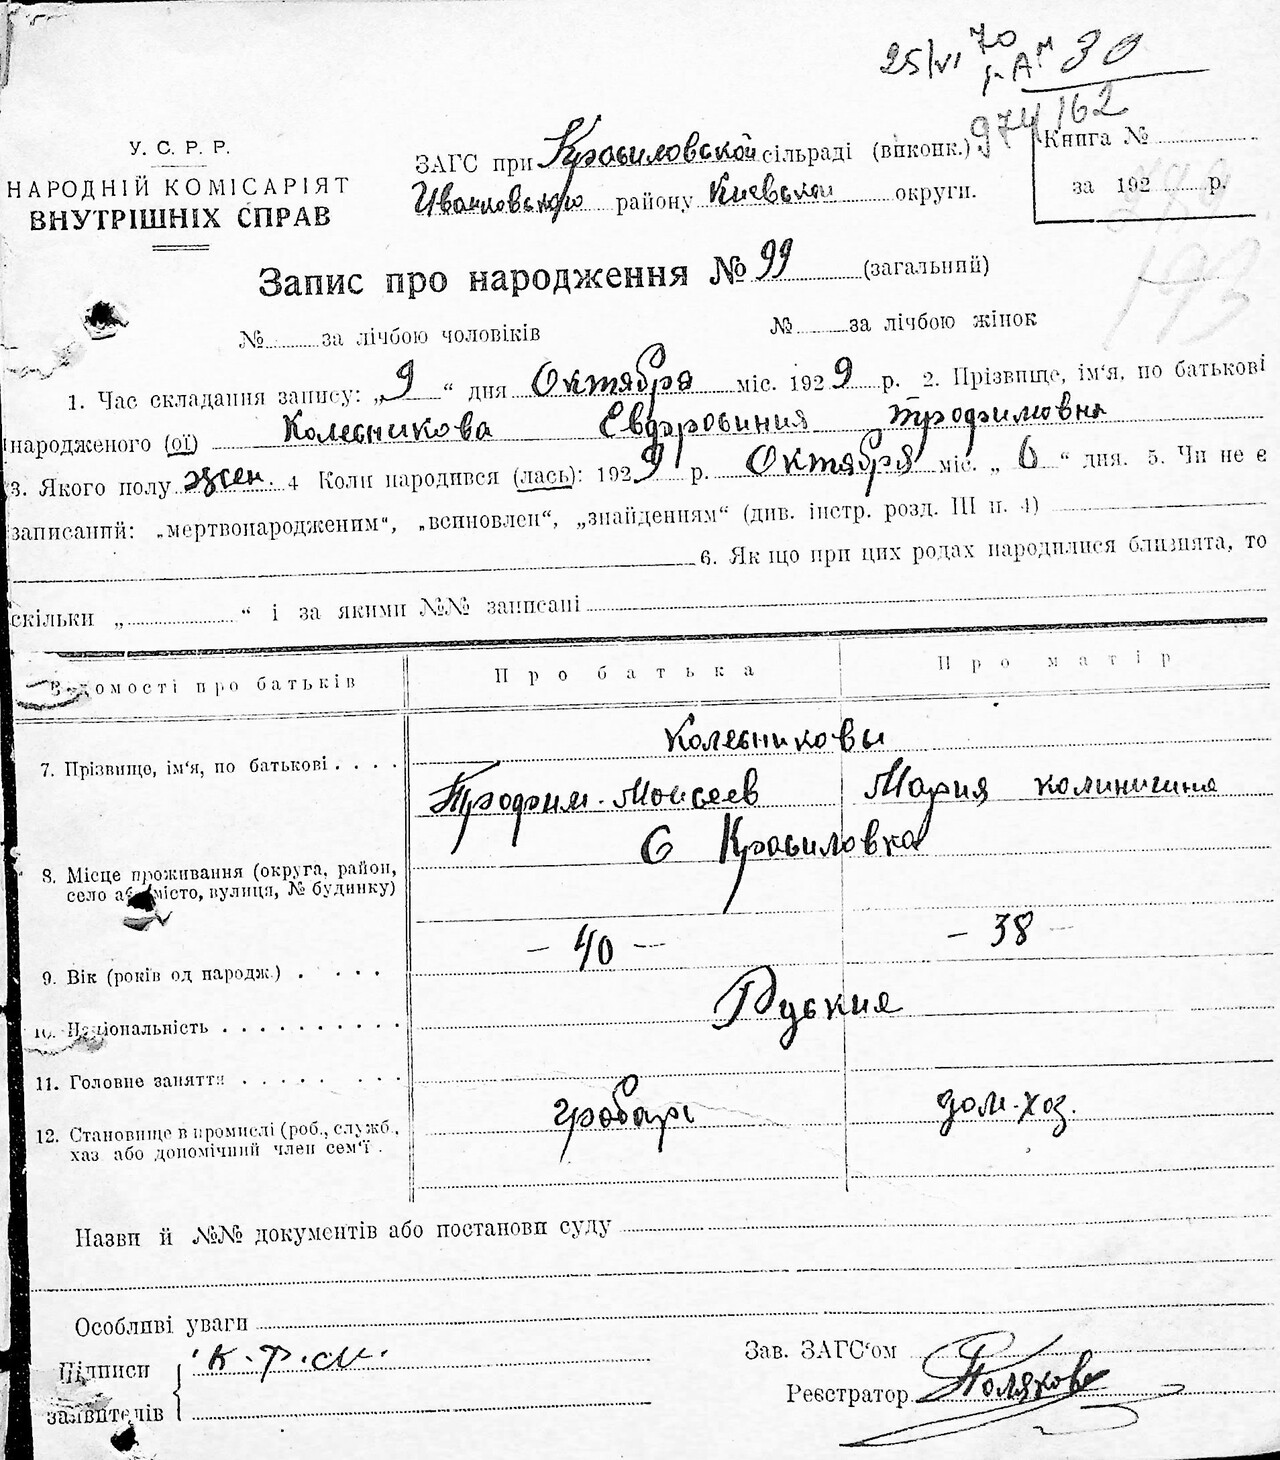 25/VI 70
г. АМ 30
974162
У. С. Р. Р.
НАРОДНІЙ КОМІСАРІЯТ
ВНУТРІШНІХ СПРАВ
ЗАГС при Красиловской сільраді (виконк.)
Иванковского району Киевской округи.
Книга №
за 192 р.
193
Запис про народження № 99 (загальний)
№ за лічбою чоловіків № за лічбою жінок
1. Час складання запису: „9“ дня Октября міс. 1929 р. 2. Прізвище, ім'я, по батькові
народженого (ої) Колесникова Евдросиния Трофимовна
3. Якого полу жен. 4 Коли народився (лась): 1929 р. Октября міс. „6“ дня. 5. Чи не є
записаний: „мертвонародженим“, „всиновлен“, „знайденням“ (див. інстр. розд. III п. 4)
6. Як що при цих родах народилися близнята, то
скільки „ “ і за якими №№ записані
Відомості про батьків Про батька Про матір
Колесниковы
7. Прізвище, ім'я, по батькові . . . . Трофим Моисеев Мария Калиничина
С Красиловка
8. Місце проживання (округа, район,
село або місто, вулиця, № будинку)
– 40 – – 38 –
9. Вік (років од народж.) . . . . .
Руския
10. Національність . . . . . . . . . .
11. Головне заняття . . . . . . . .
гробарь дом.-хоз.
12. Становище в промислі (роб., служб.,
хаз або допомічний член сем'ї .
Назви й №№ документів або постанови суду
Особливі уваги
Підписи К.Ф.М.
заявителів
Зав. ЗАГС'ом
Реєстратор Поляков